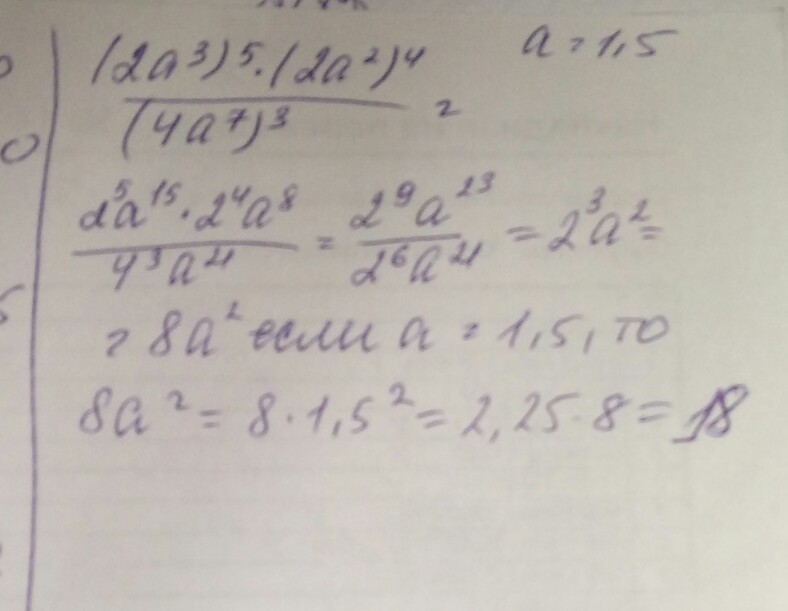 (2a³)⁵·(2a²)⁴ / (4a⁷)³ = a = 1,5
2⁵a¹⁵·2⁴a⁸ / 4³a²¹ = 2⁹a²³ / 2⁶a²¹ = 2³a² =
= 8a² если a = 1,5, то
8a² = 8·1,5² = 2,25·8 = 18